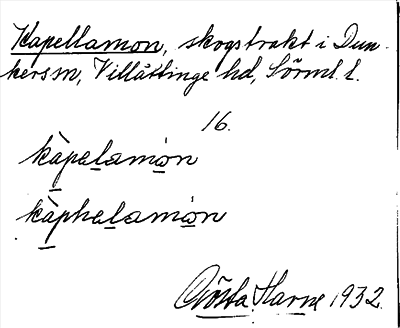 Kapellamon, skogstrakt i Dun-
kersm, Villåttinge hd, Sörml. l.
16.
kàpelamòn
kàphelamòn
Gösta Harne 1932.